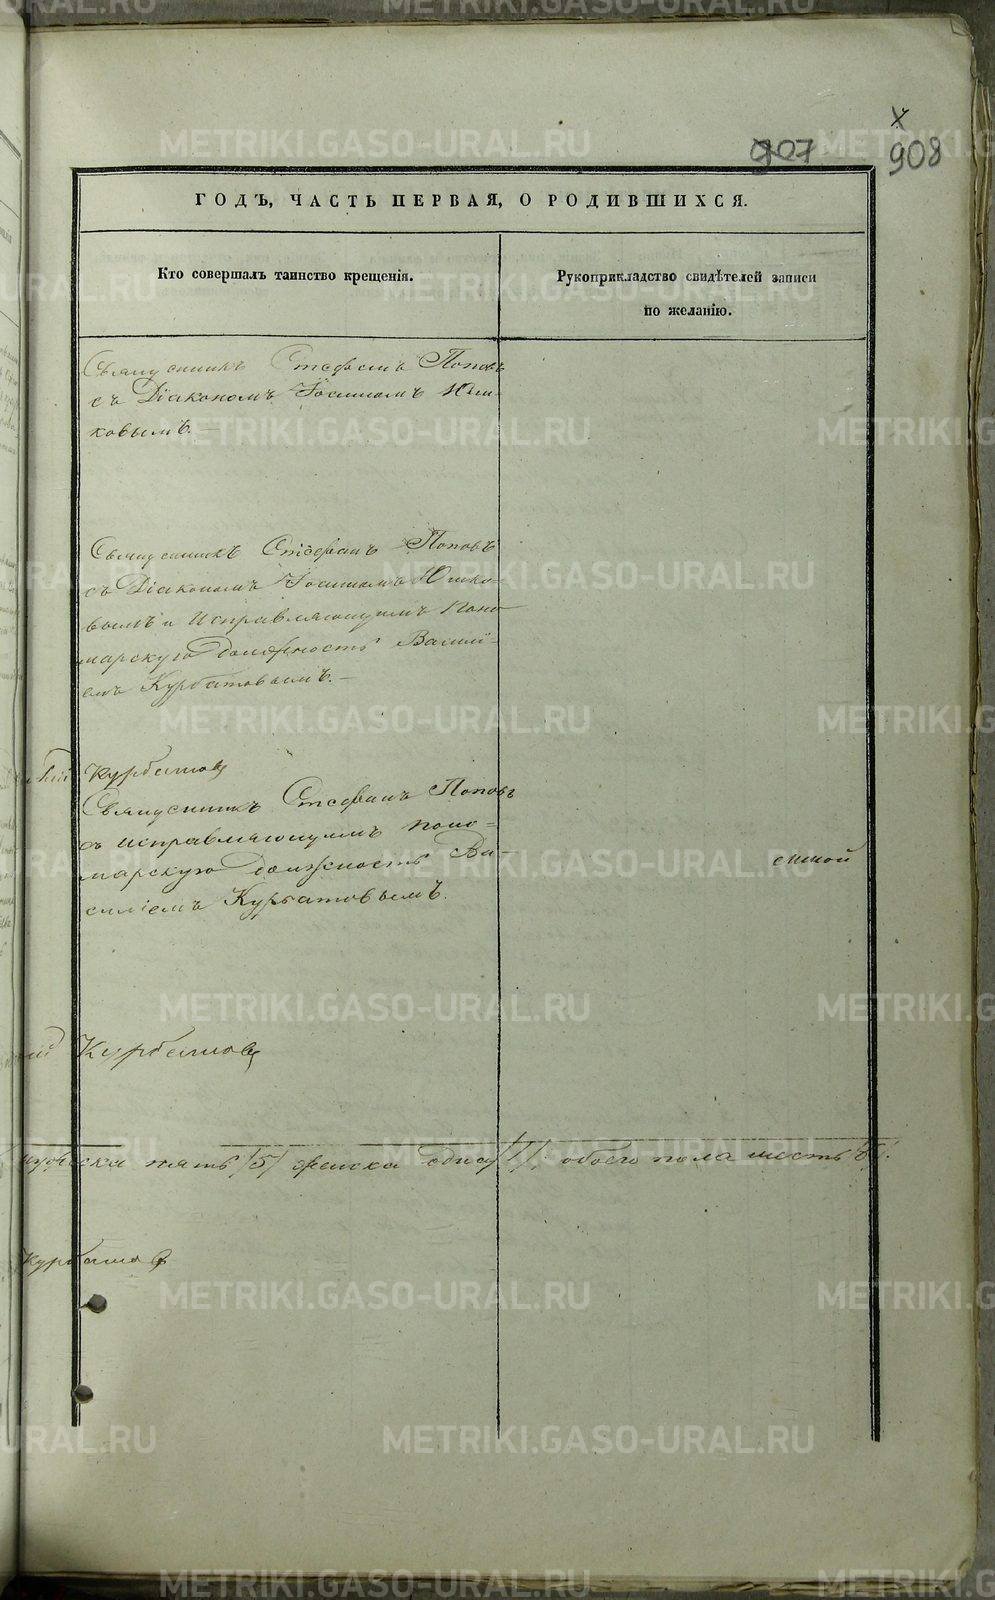 907
908
ГОДЪ, ЧАСТЬ ПЕРВАЯ, О РОДИВШИХСЯ.
Кто совершалъ таинство крещенія.
Рукоприкладство свидѣтелей записи
по желанію.
Священникъ Стефанъ Поповъ
съ Діакономъ Іоанномъ Юш-
ковымъ.—
Священникъ Стефанъ Поповъ
съ Діакономъ Іоанномъ Юшко-
вымъ и исправляющимъ поно-
марскую должность Василі-
емъ Курбатовымъ.—
Курбатовъ
Священникъ Стефанъ Поповъ
съ исправляющимъ поно-
марскую должность Ва-
силіемъ Курбатовымъ.
Курбатовъ
мужеска пять /5/ женска одна /1/ обоего пола шесть /6/.
Курбатовъ
METRIKI.GASO-URAL.RU